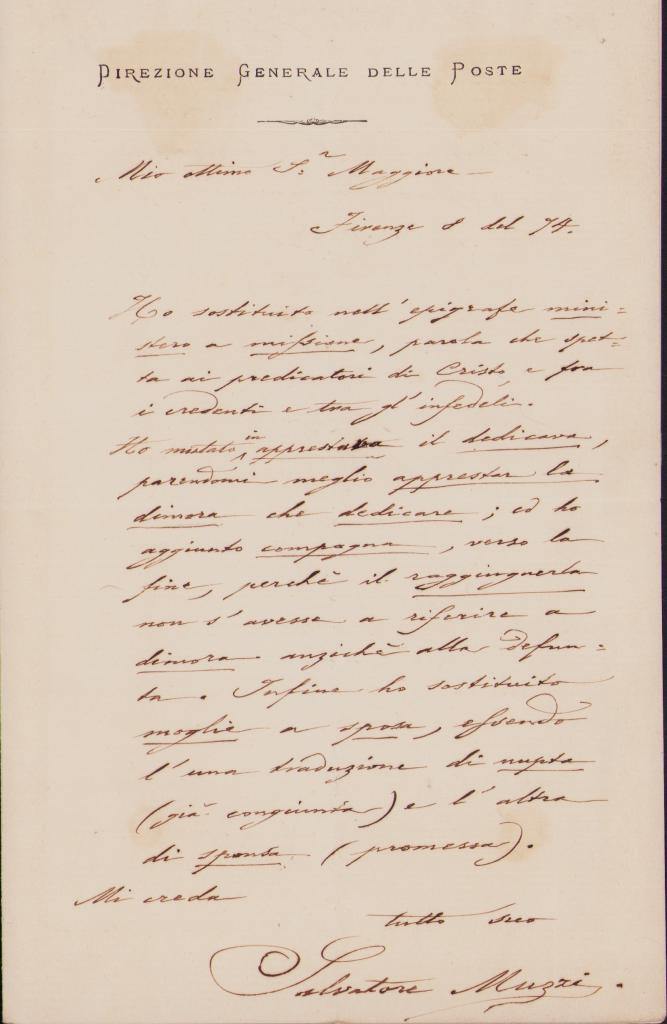 DIREZIONE GENERALE DELLE POSTE
Mio ottimo S.r Maggiore
Firenze 8 del 74.
Ho sostituito nell'epigrafe mini=
stero a missione, parola che spet=
ta ai predicatori di Cristo, e fra
i credenti e tra gl'infedeli.
Ho mutato in apprestava il dedicava,
parendomi meglio apprestar la
dimora che dedicare; ed ho
aggiunto compagna, verso la
fine, perchè il raggiungerla
non s'avesse a riferire a
dimora anzichè alla defun=
ta. Infine ho sostituito
moglie a sposa, essendo
l'una traduzione di nupta
(già congiunta) e l'altra
di sponsa (promessa).
Mi creda
tutto suo
Salvatore Muzzi.